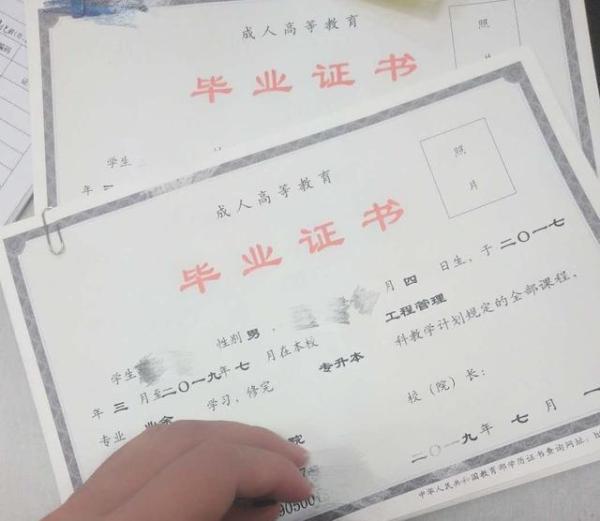 成人高等教育
毕业证书
照
片
学生
年
成人高等教育
毕业证书
照
片
学生 性别 男, 月 四 日生, 于 二〇一七
年 三 月至 二〇一九 年 七 月在本校 工程管理
专业 业余 学习, 修完 专升本 科教学计划规定的全部课程,
院 校(院)长:
二〇一九 年 七 月 一
905001
中华人民共和国教育部学历证书查询网址: